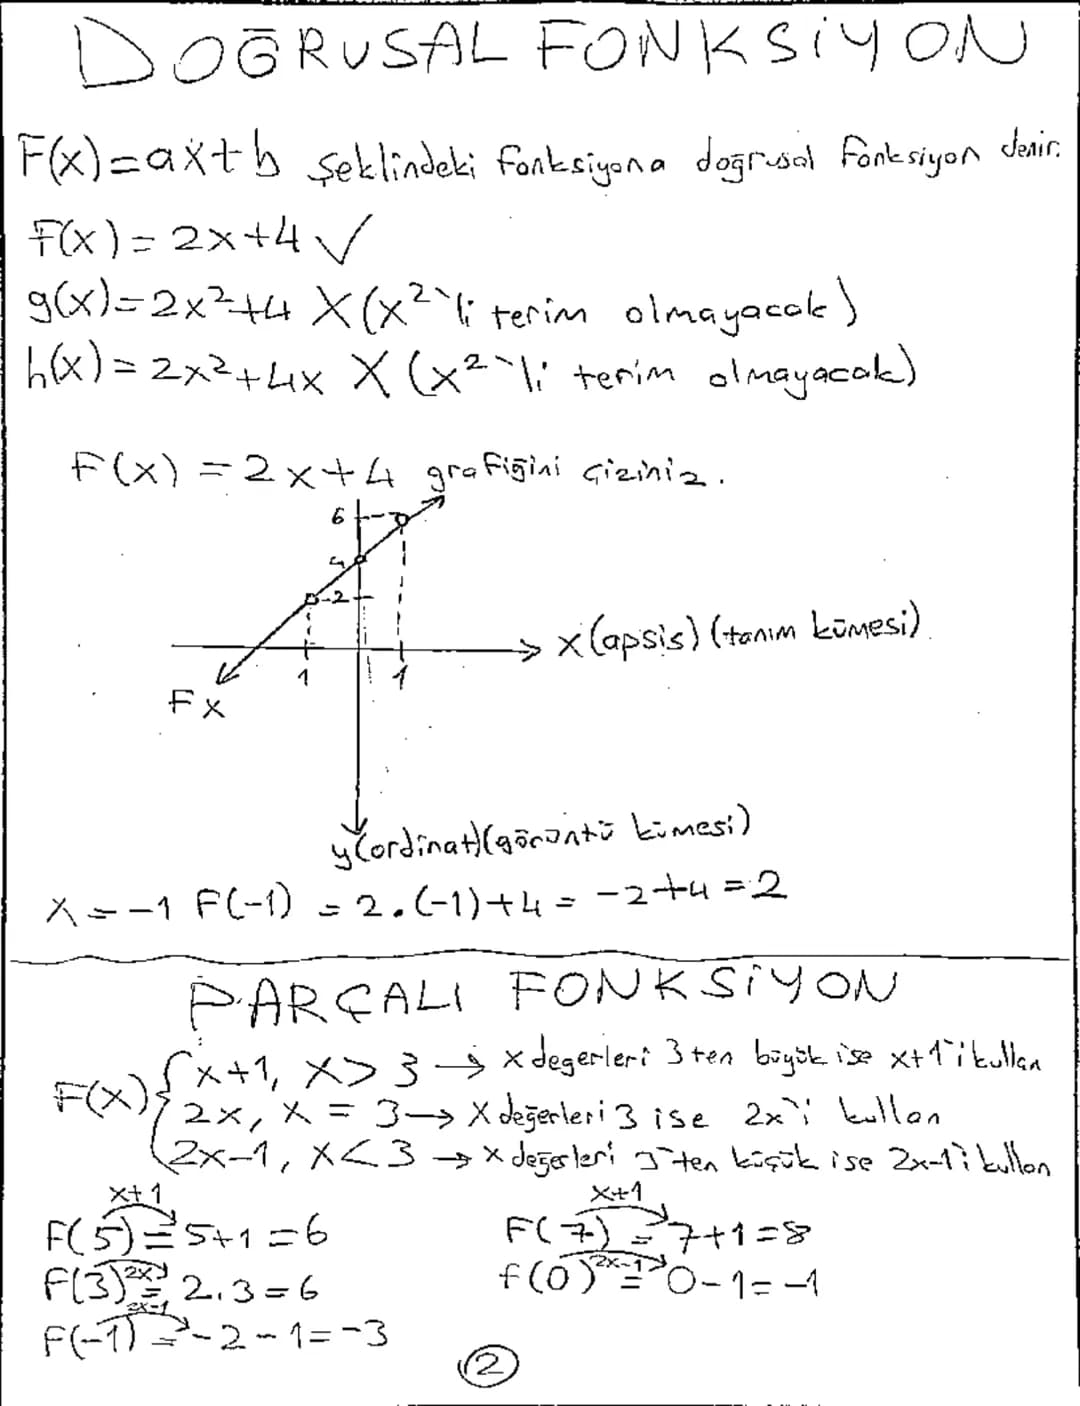 DOĞRUSAL FONKSİYON
F(x)=ax+b şeklindeki fonksiyona doğrusal fonksiyon denir.
F(x)=2x+4 ✓
g(x)=2x²+4 X (x²`li terim olmayacak)
h(x)=2x²+4x X (x²`li terim olmayacak)
F(x)=2x+4 grafiğini çiziniz.
6
4
2
x(apsis) (tanım kümesi)
1 1
Fx
y(ordinat)(görüntü kümesi)
x=-1 F(-1) = 2.(-1)+4 = -2+4 = 2
PARÇALI FONKSİYON
F(x) { x+1, x>3 → x degerleri 3 ten büyük ise x+1`i kullan
2x, x=3 → x değerleri 3 ise 2x`i kullan
2x-1, x<3 → x değerleri 3`ten küçük ise 2x-1`i kullan
x+1 x+1
F(5)=5+1=6 F(7)=7+1=8
2x 2x-1
F(3)=2.3=6 f(0)=0-1=-1
2x-1
F(-1)=-2-1=-3
2